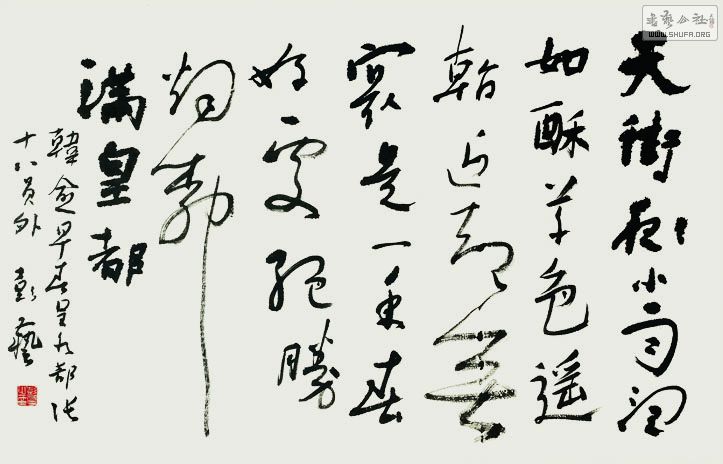 天街小雨润
如酥草色遥
看近却無
最是一年春
好處絕勝
烟柳
滿皇都
韓愈早春呈水部张
十八員外 彭藝
书艺公社
WWW.SHUFA.ORG